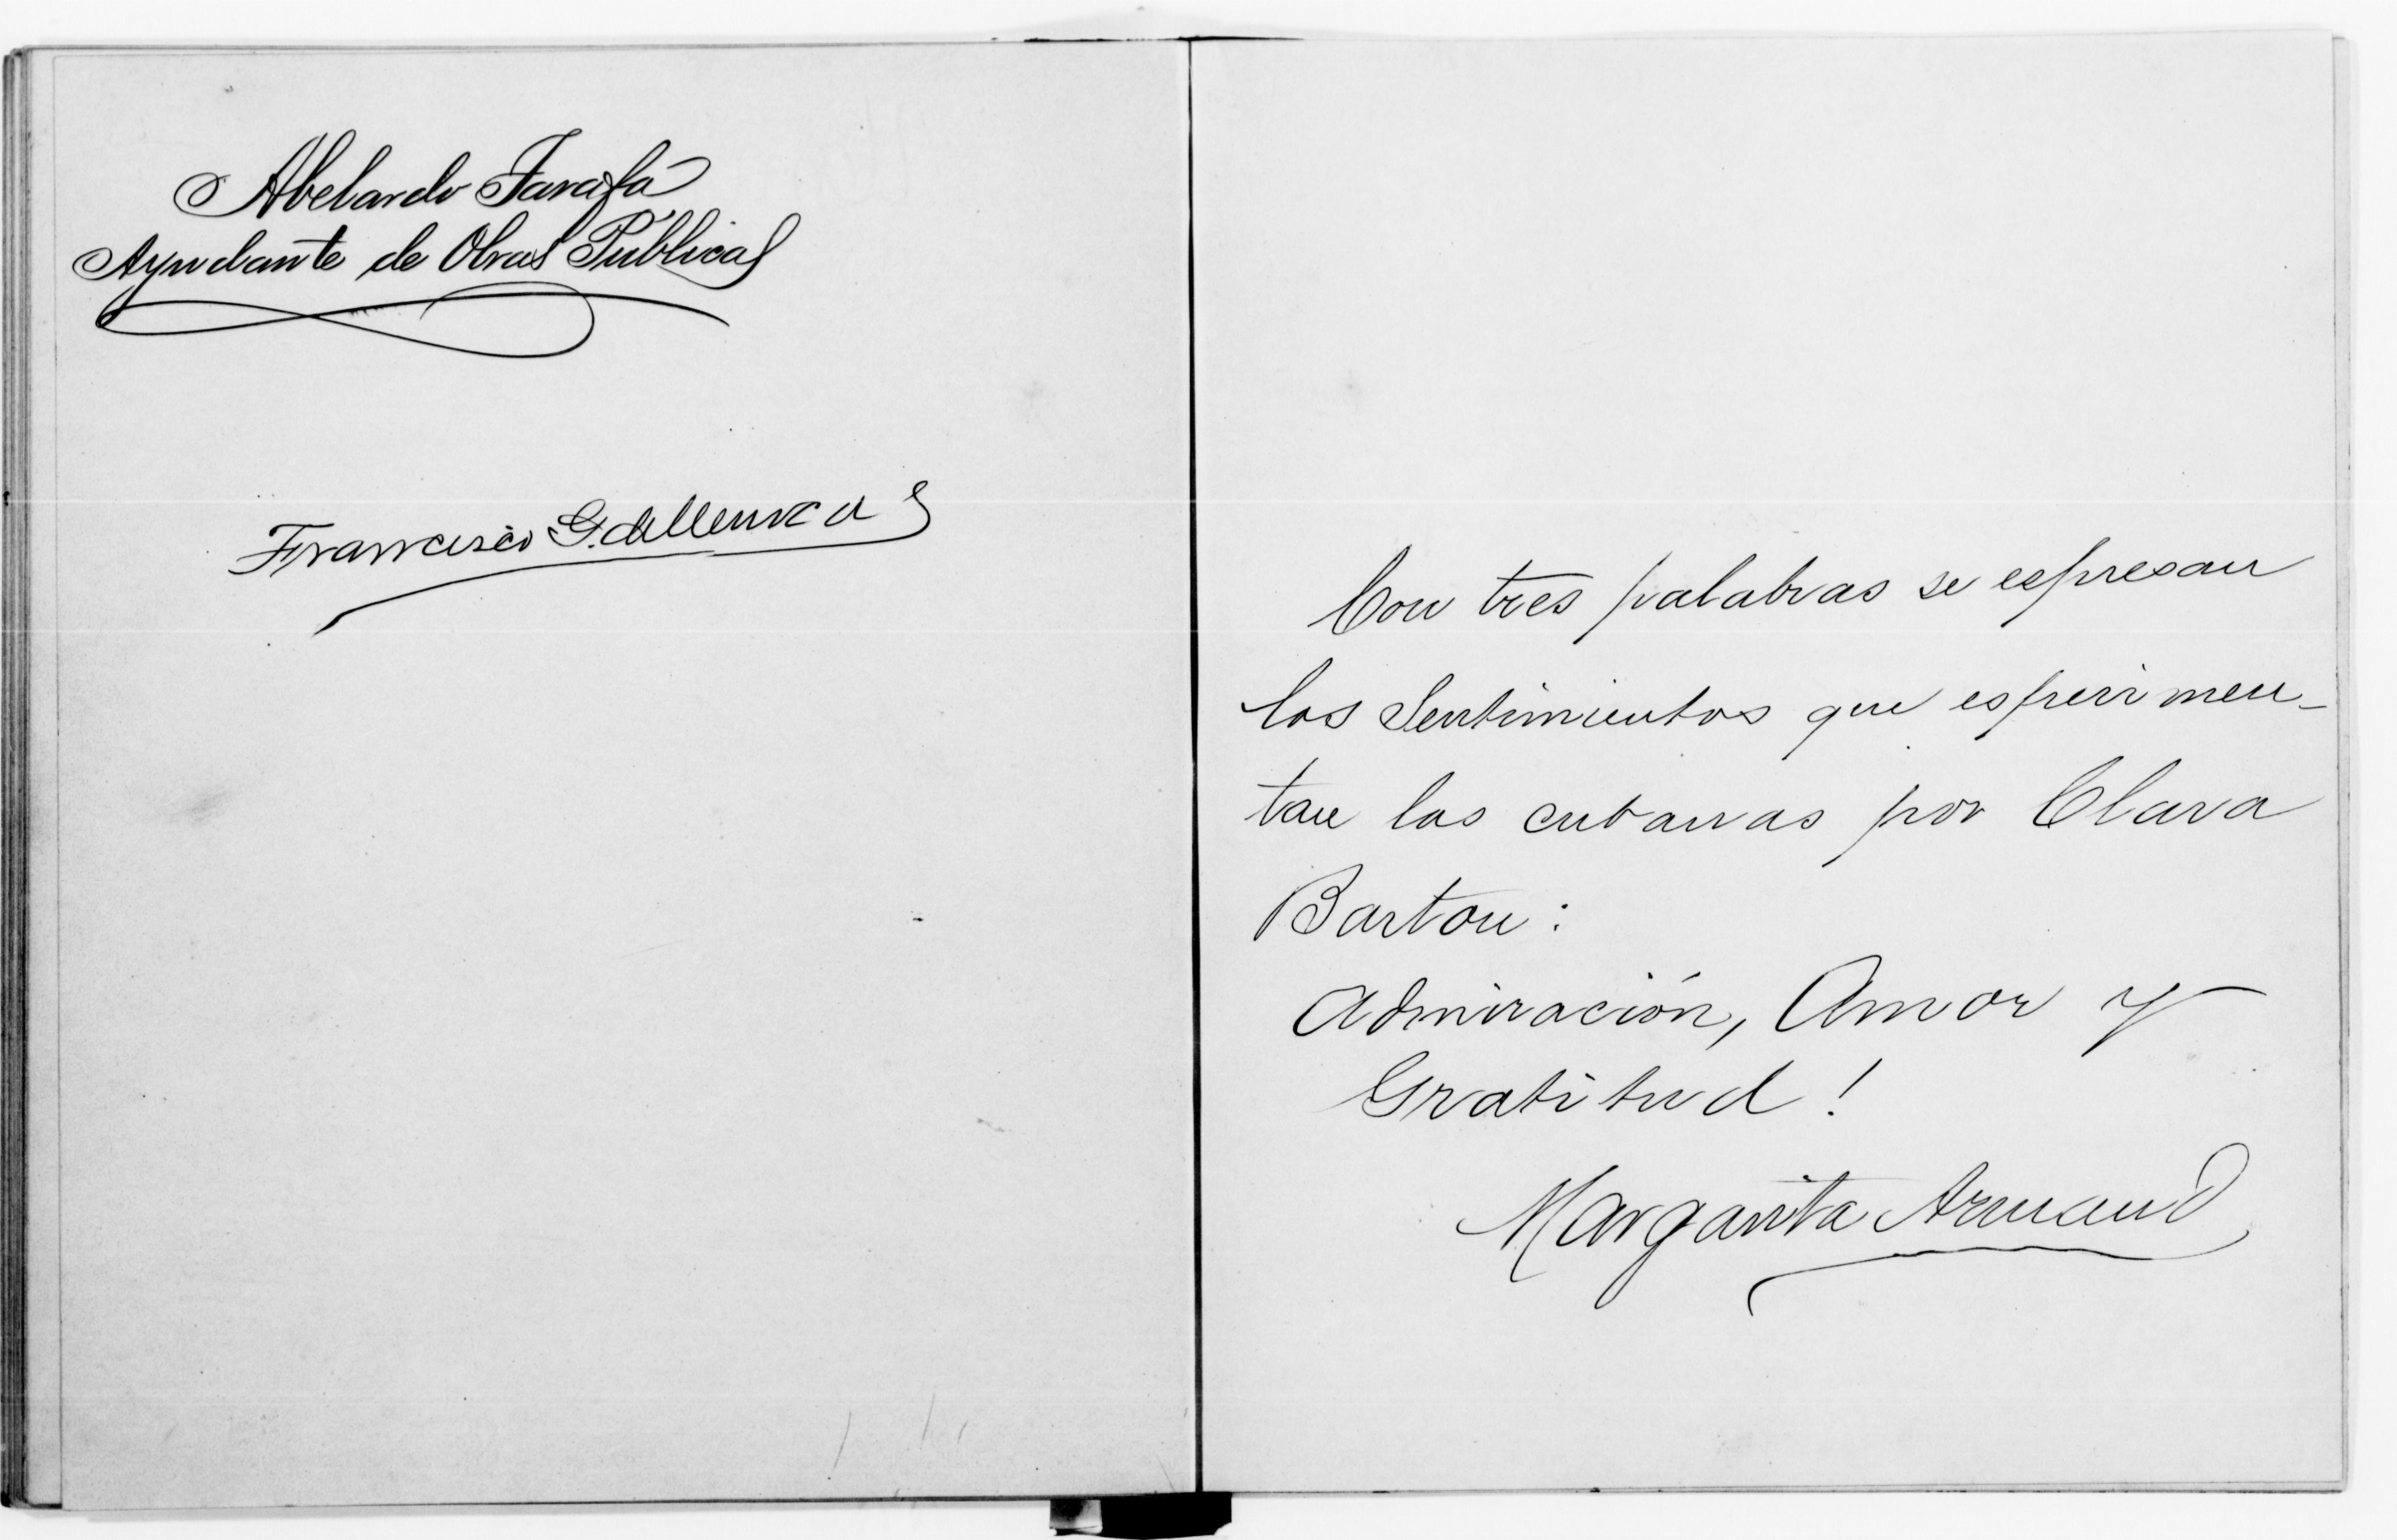 Abelardo Tarafa
Ayudante de Obras Públicas
Francisco G.
Con tres palabras se espresan
los Sentimientos que esperimen-
tan las cubanas por Clara
Barton:
Admiración, Amor y
Gratitud!
Margarita Armand